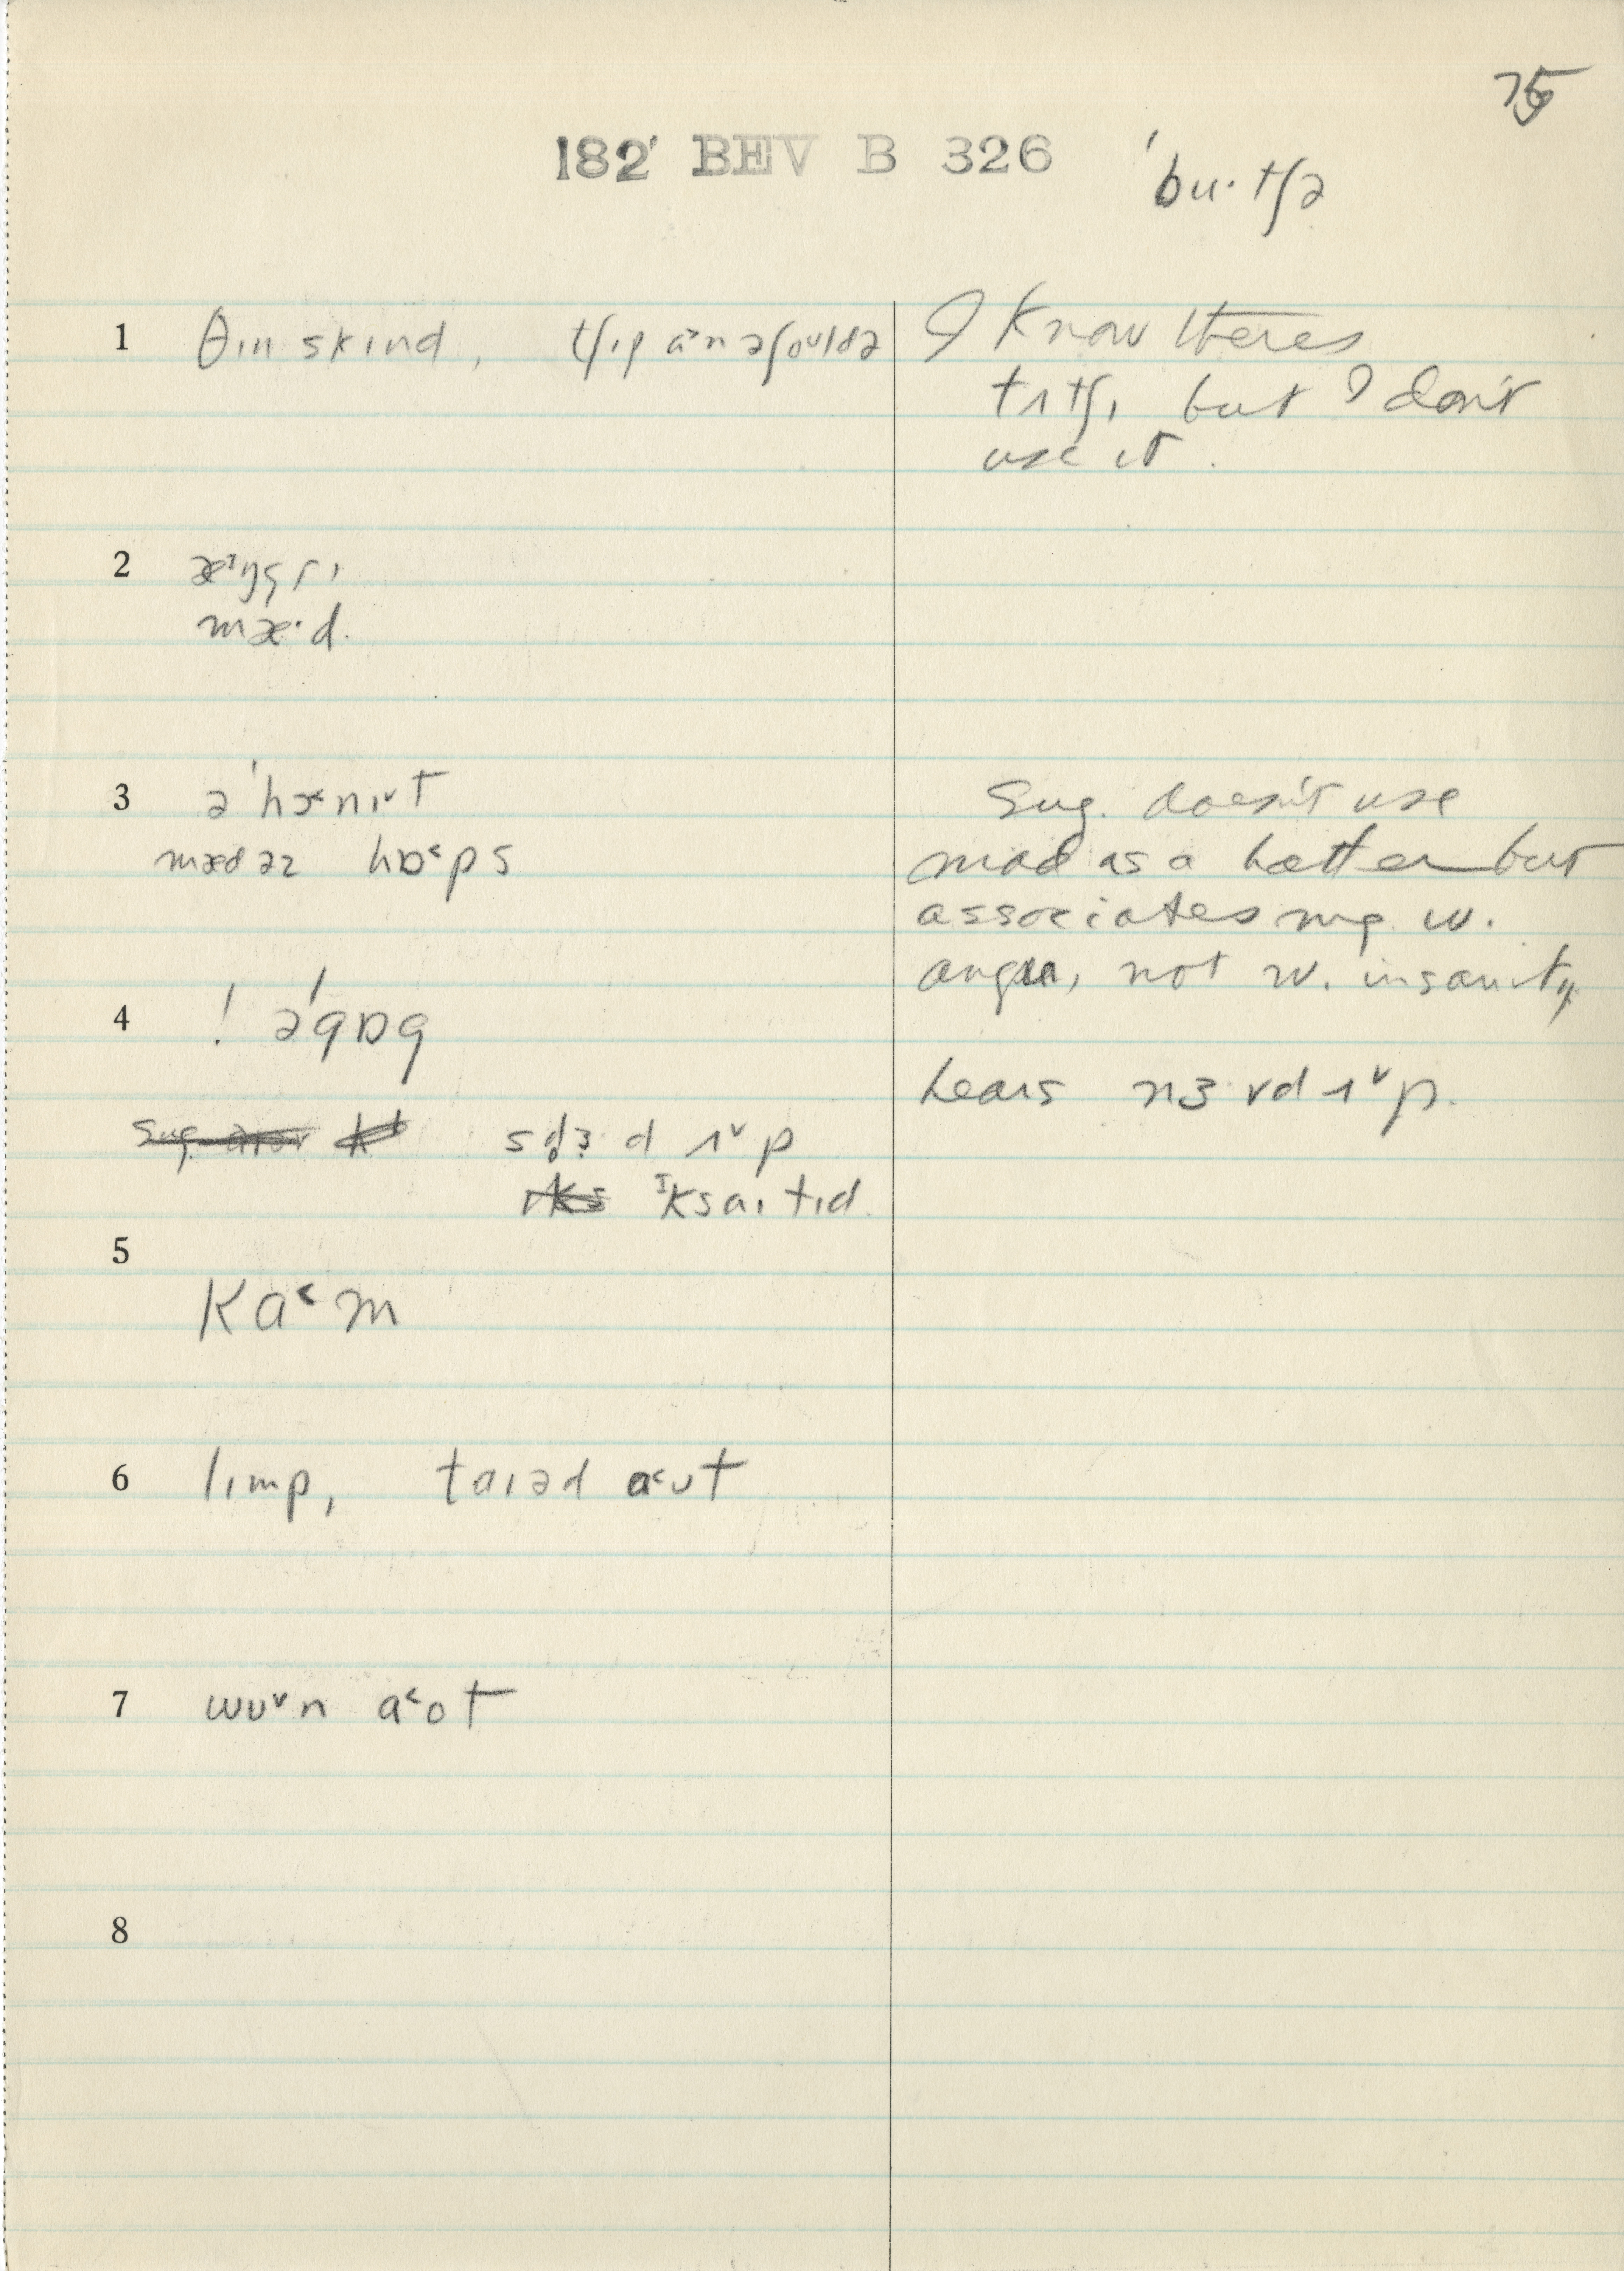 75
182 BEV B 326
ˈbu·tʃə
1 θɪn skɪnd, tʃɪp ɑ˃n ə ʃoʊldə
I know theres
tʌtʃɪ but I don't
use it.
2
mæ·d.
3 ə ˈhɔ˂nɪ˅t
mæd əz hɒ˂ps
Sug. doesn't use
mad as a hatter but
associates mg. w.
anger, not w. insanity.
4 ! əˈgɒg
hears nɜ·vd ʌ˅p.
ʌ˅p
ɪksaɪtɪd.
5
kɑ˂m
6 lɪmp, taɪəd a˂ʊt
7 wʊ˅n a˂ot
8